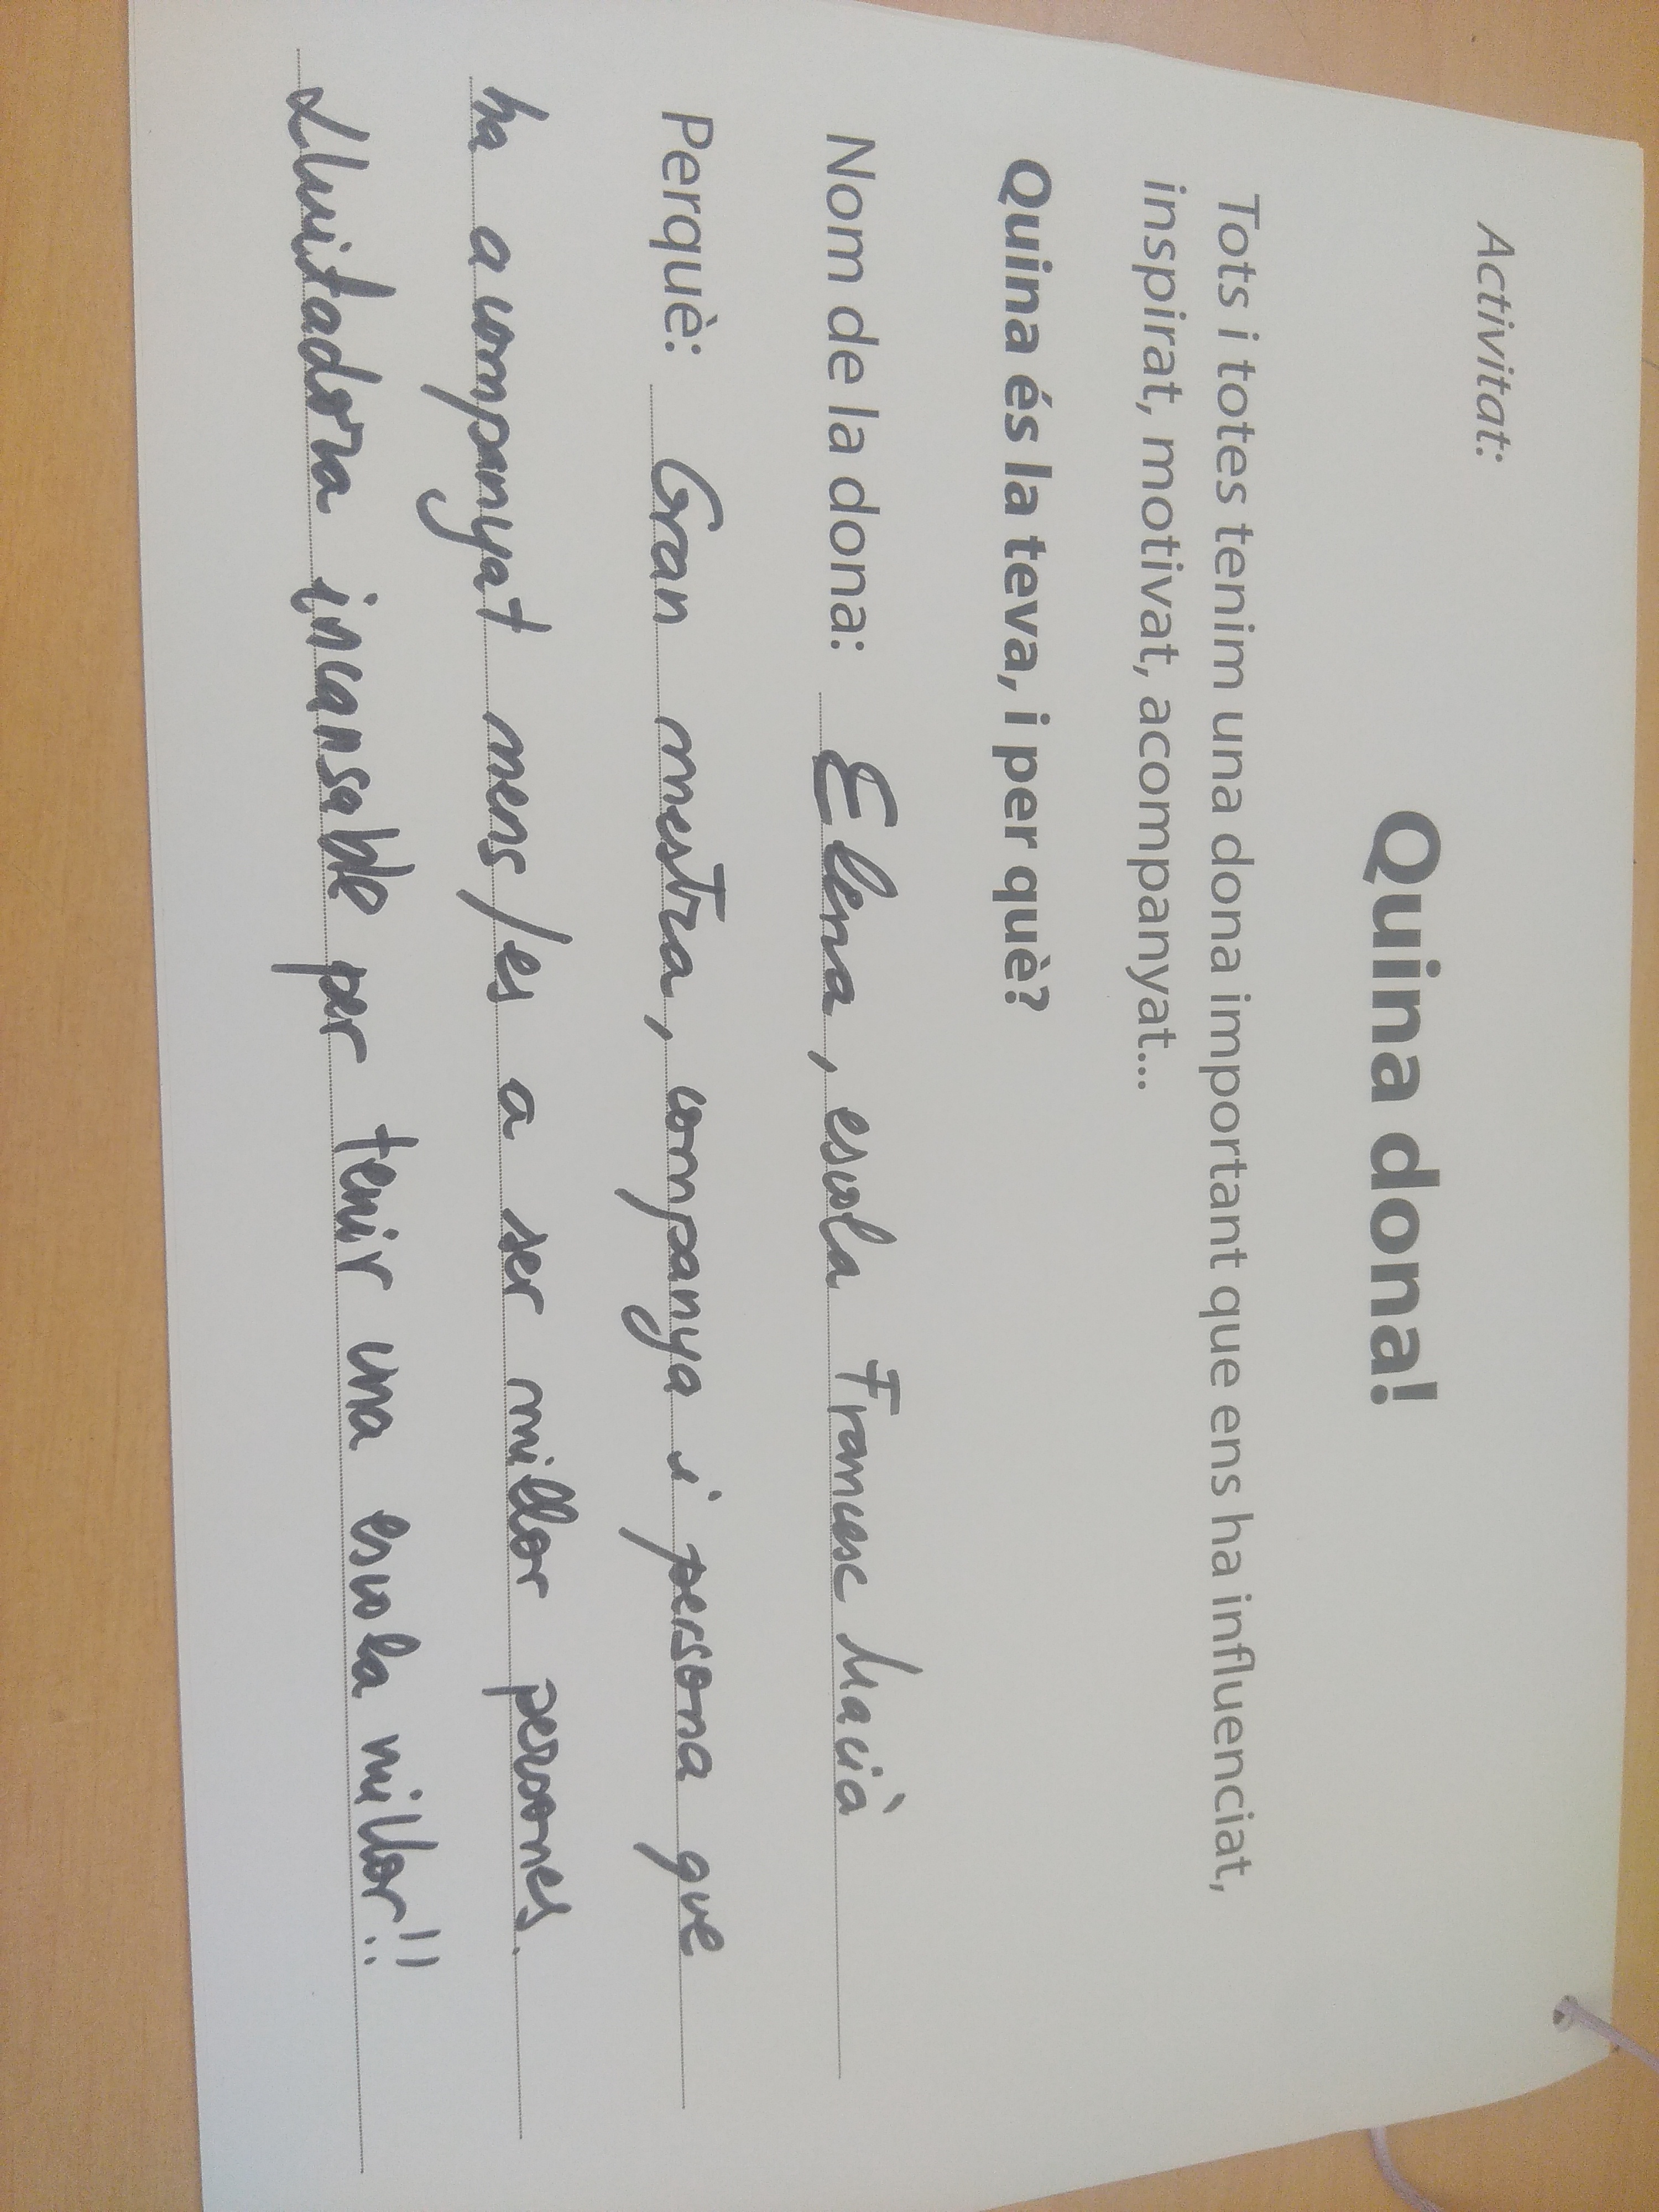 Activitat:
Quina dona!
Tots i totes tenim una dona important que ens ha influenciat,
inspirat, motivat, acompanyat...
Quina és la teva, i per què?
Nom de la dona: Elena, escola Francesc Macià
Perquè: Gran mestra, companya i persona que
ha acompanyat nens/es a ser millor persones.
Lluitadora incansable per tenir una escola millor!!